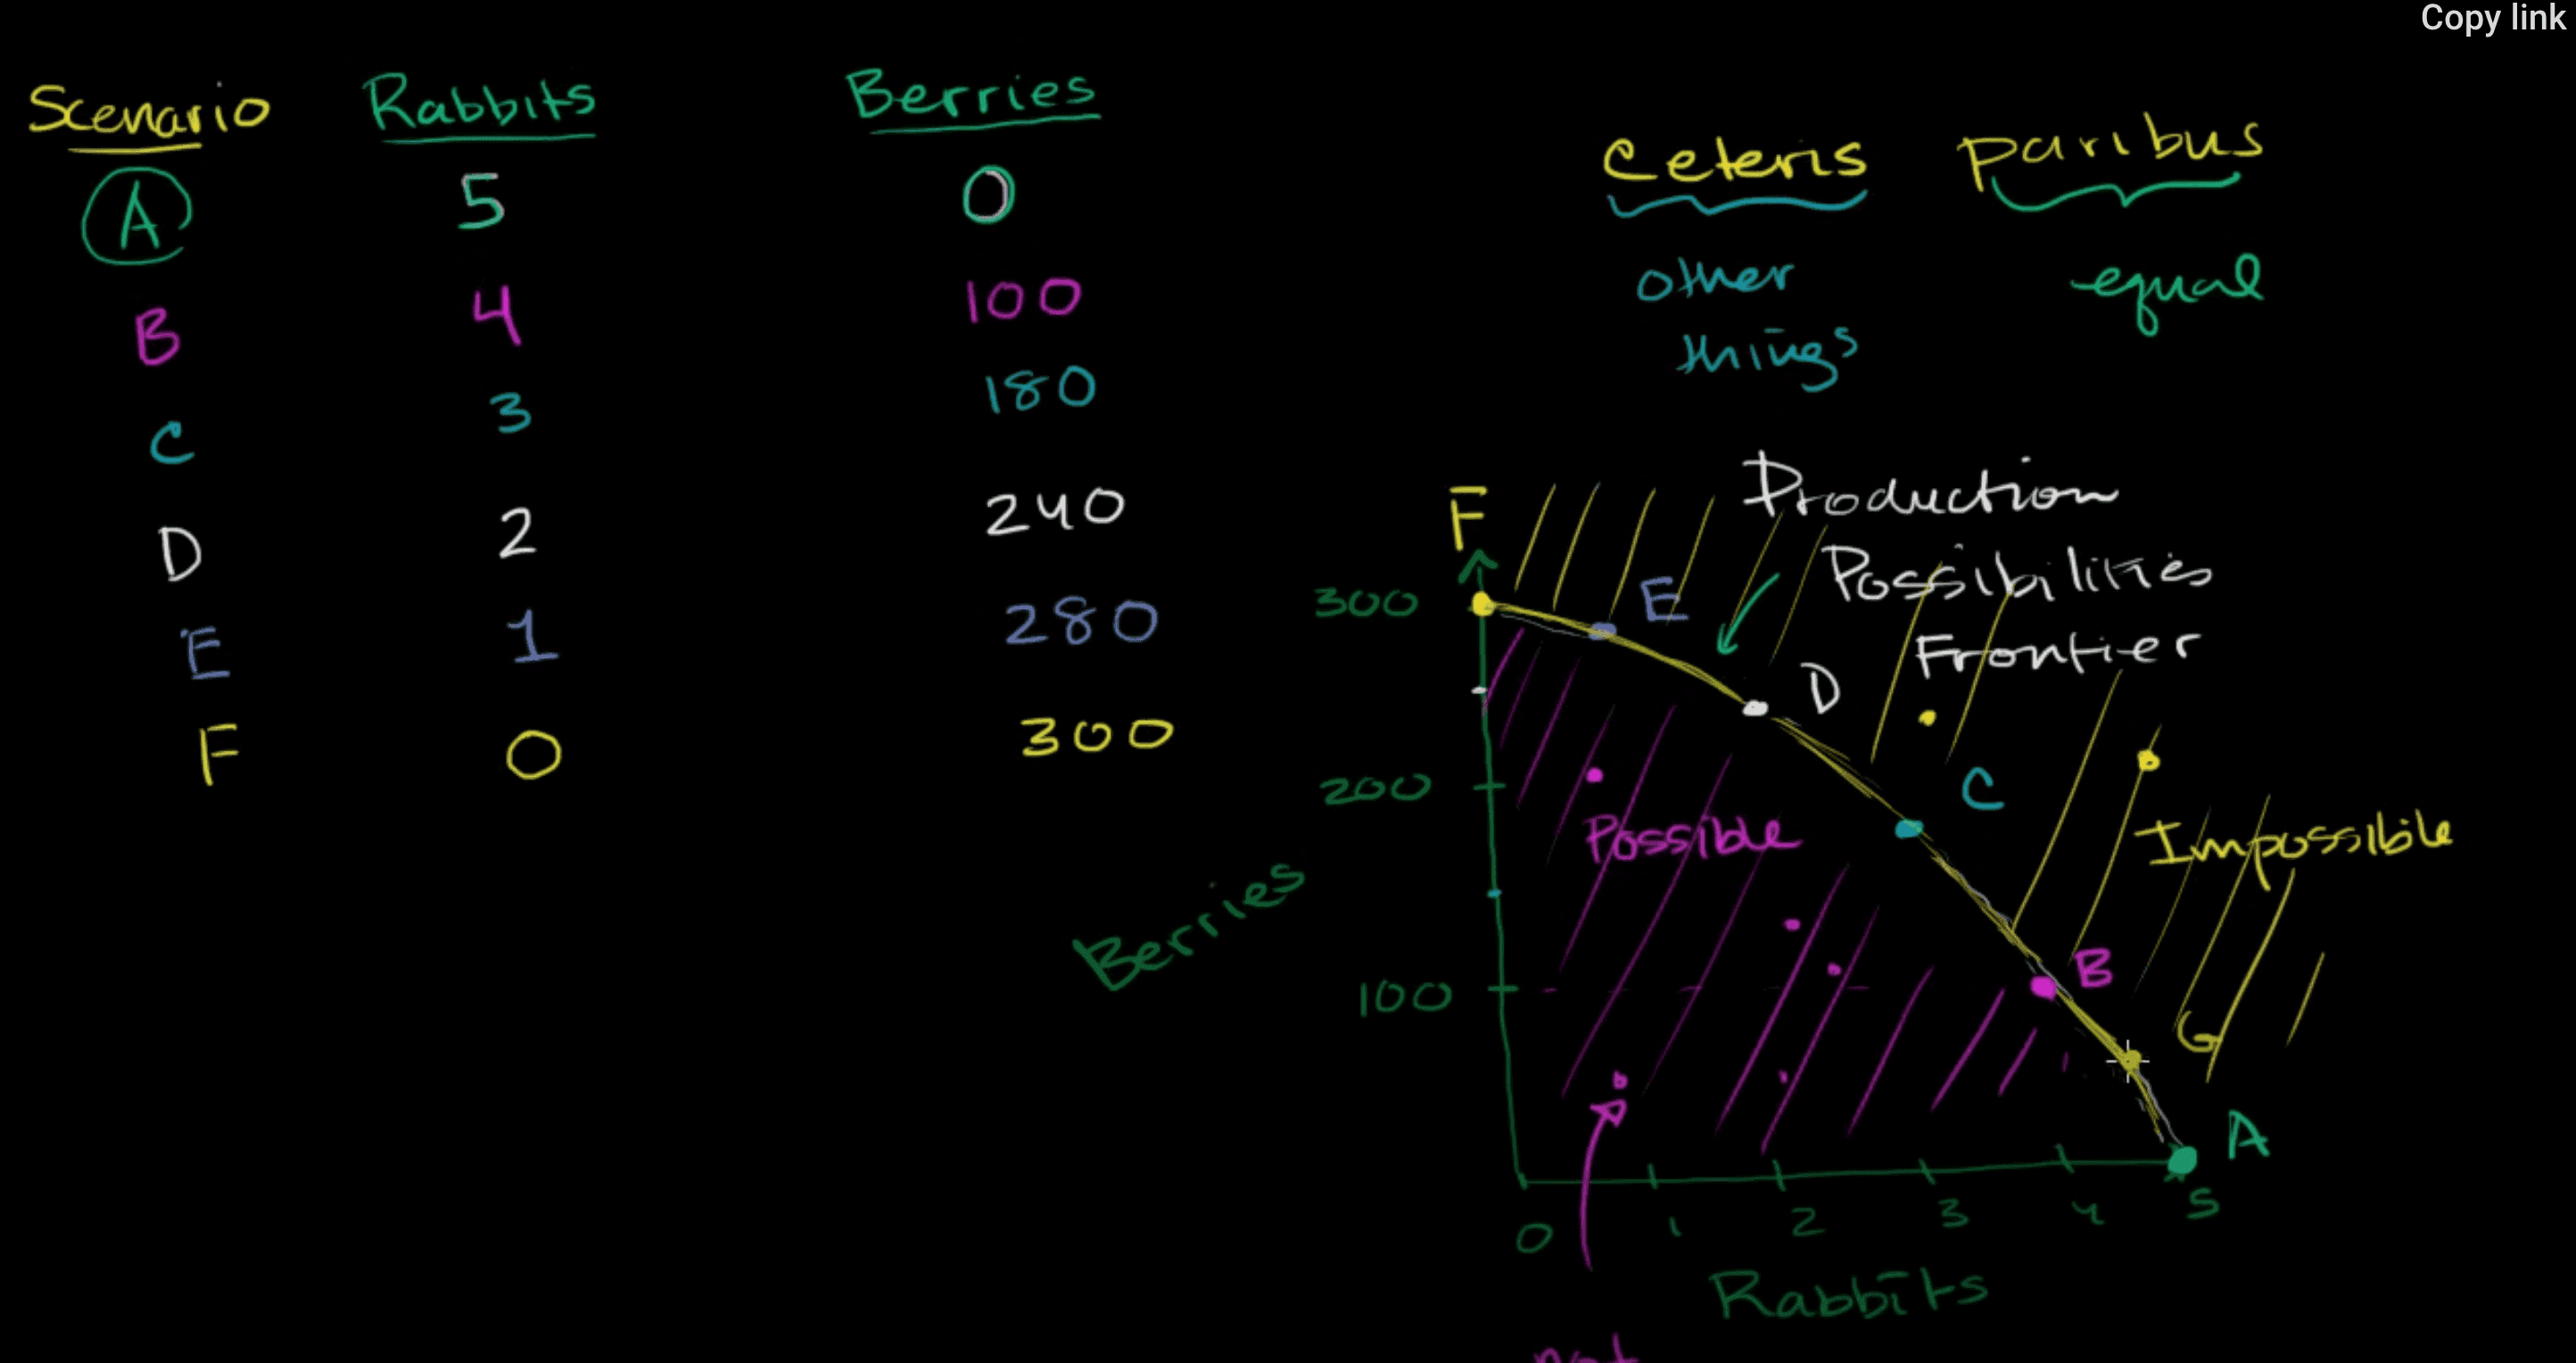 Copy link
Scenario Rabbits Berries
A 5 0
B 4 100
C 3 180
D 2 240
E 1 280
F 0 300
Ceteris paribus
other equal
things
Production
Possibilities
Frontier
F
300
E
D
200
C
Possible
Impossible
Berries
100
B
G
A
0 1 2 3 4 5
Rabbits
not